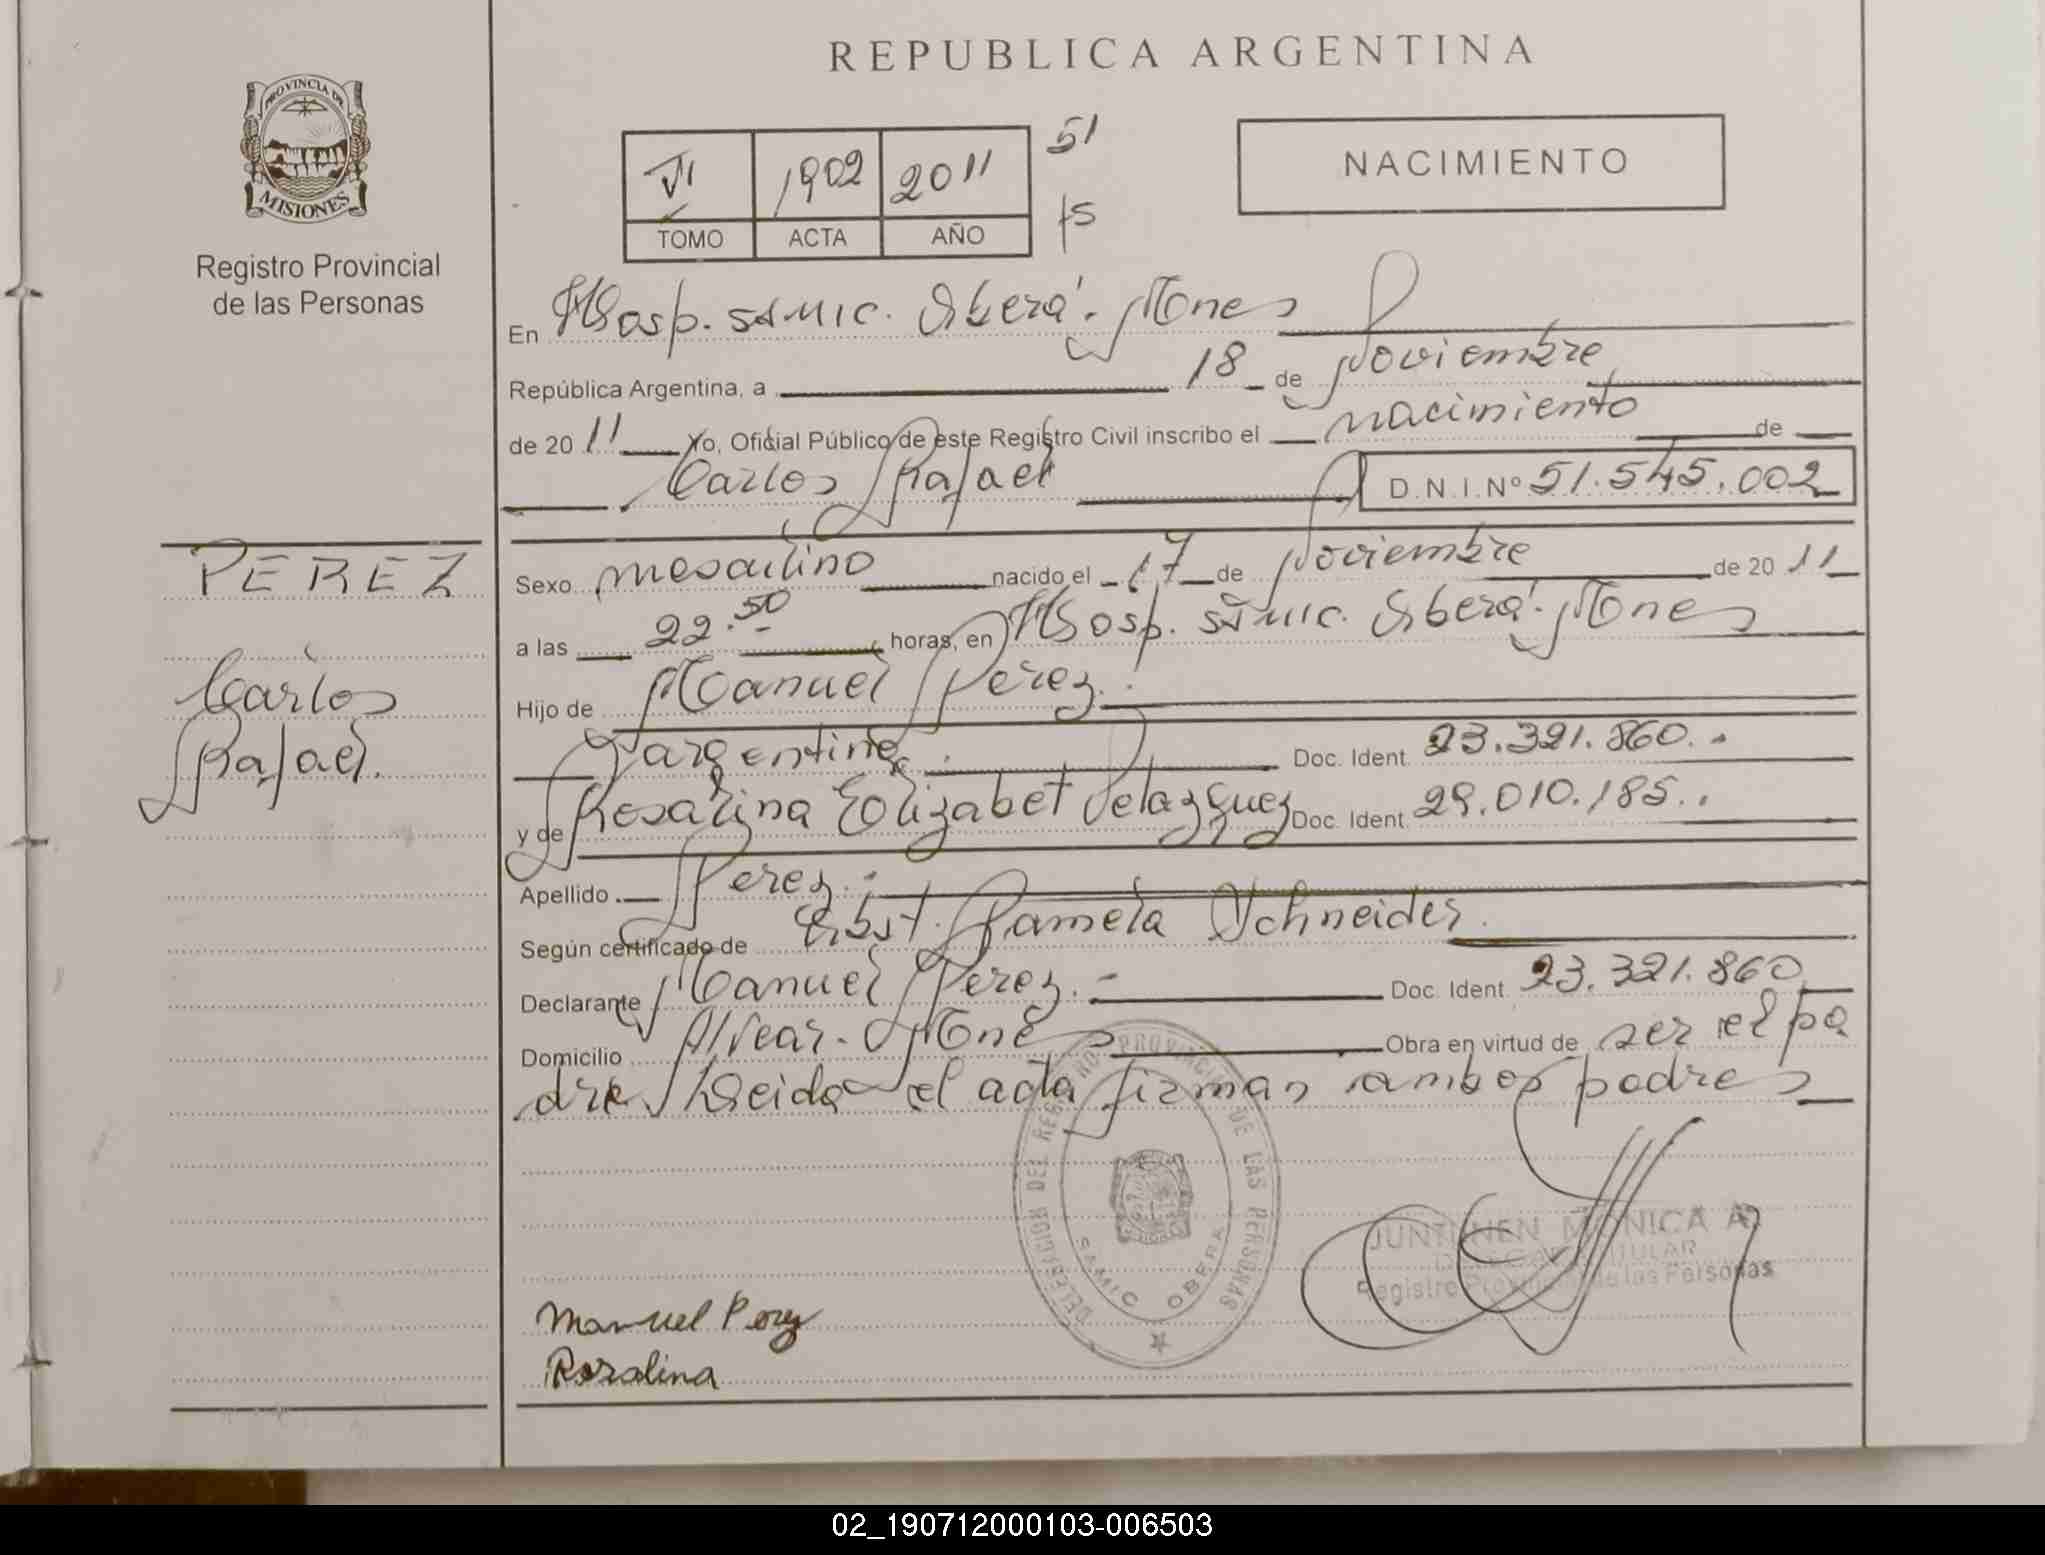 REPUBLICA ARGENTINA
PROVINCIA DE
MISIONES
Registro Provincial
de las Personas
VI 1902 2011 51
TOMO ACTA AÑO fs
NACIMIENTO
En Hosp. SAMIC. Oberá. Mones
República Argentina, a 18 de Noviembre
de 2011 Yo, Oficial Público de este Registro Civil inscribo el nacimiento de
Carlos Rafael D.N.I.Nº 51.545.002
PEREZ
Carlos
Rafael.
Sexo masculino nacido el 17 de Noviembre de 2011
a las 22.50 horas, en Hosp. SAMIC. Oberá. Mones
Hijo de Manuel Perez.
argentino Doc. Ident. 23.321.860.
y de Rosalina Elizabet Velazquez Doc. Ident. 29.010.185.
Apellido Perez.
Según certificado de Obst. Pamela Schneider.
Declarante Manuel Perez. Doc. Ident. 23.321.860
Domicilio Alvear. Mones Obra en virtud de ser el pa
dre Leida el acta firman ambos padres
DELEGACION DEL REGISTRO PROVINCIAL DE LAS PERSONAS
SAMIC OBERA
JUNTUNEN MONICA A.
DELEGADA TITULAR
Registro Provincial de las Personas
Manuel Perez
Rosalina
02_190712000103-006503